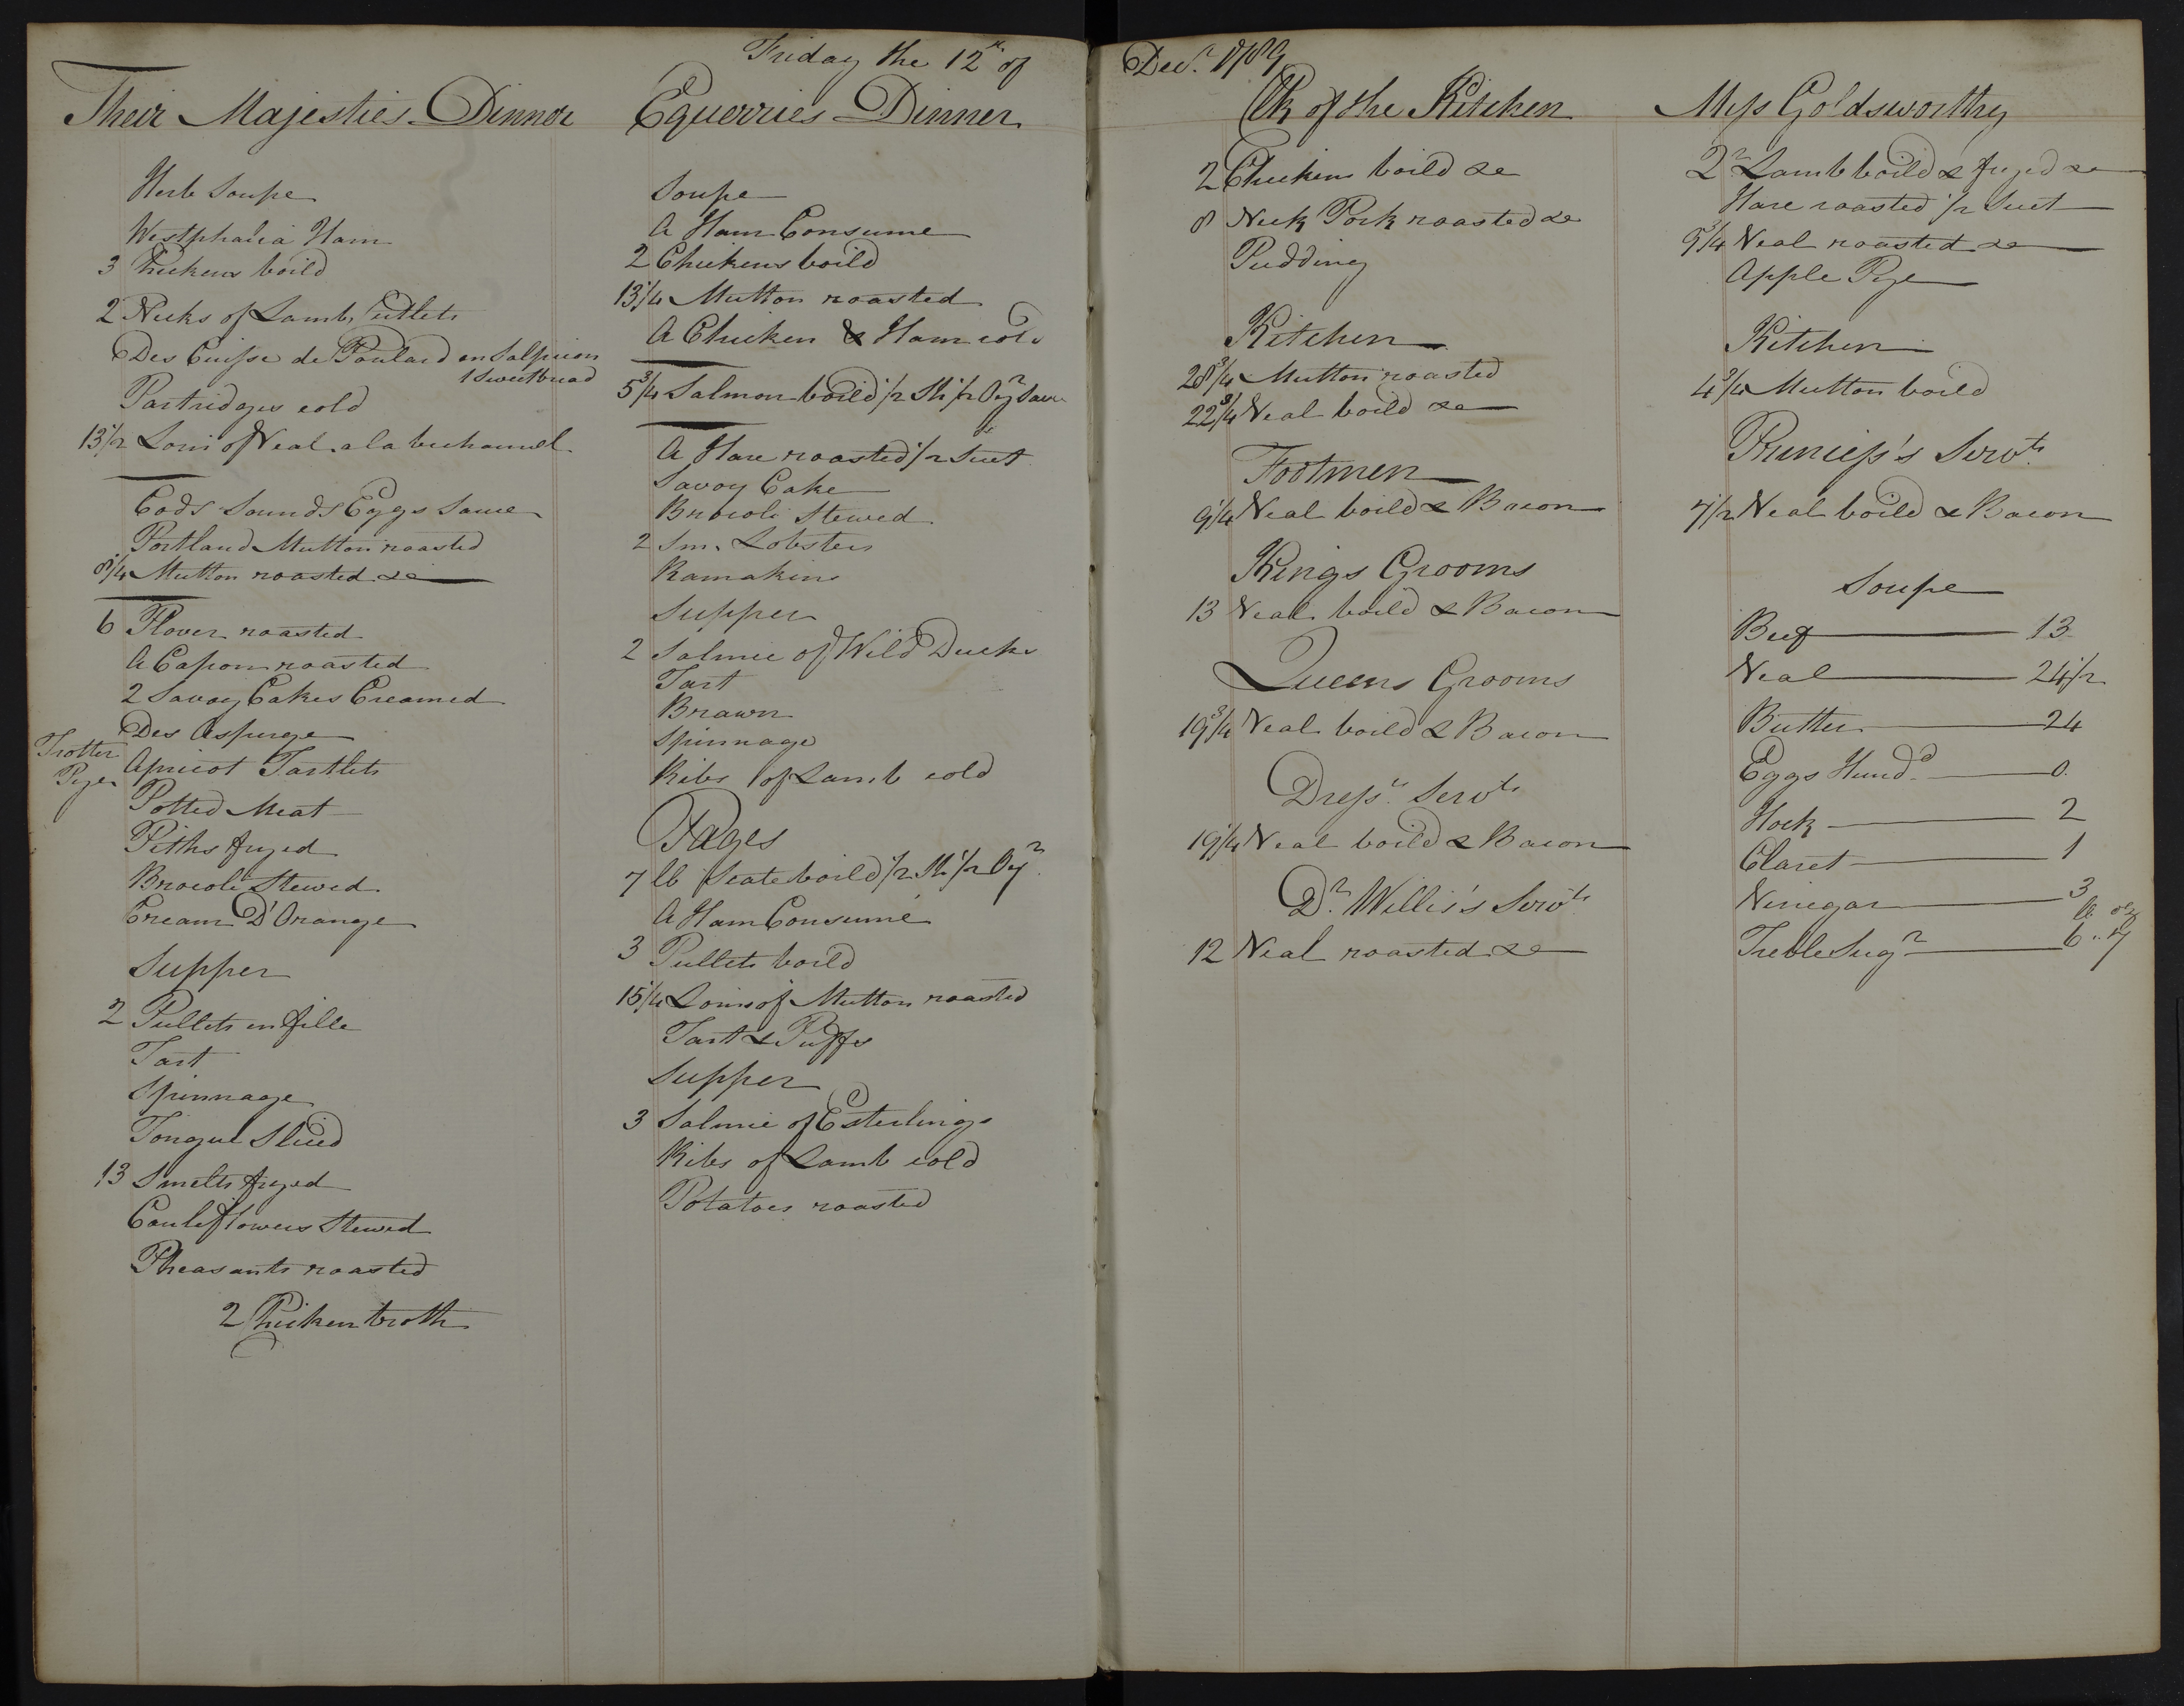 Friday the 12th of
Decr. 1789
Their Majesties Dinner
Herb Soupe
Westphalia Ham
3 Chickens boild
2 Necks of Lamb Cutlets
Des Cuisse de Poulard en Salpicon
1 Sweetbread
Partridges cold
13 1/2 Loin of Veal a la bechamel
Cods Sounds Eggs Sauce
Portland Mutton roasted
8 1/4 Mutton roasted &c
6 Plover roasted
A Capon roasted
2 Savoy Cakes Creamed
Des Asperge
Trotter
Pye
Apricot Tartlets
Potted Meat
Piths fryed
Brocoli Stewed
Cream D'Orange
Supper
2 Pullets en fille
Tart
Spinnage
Tongue Sliced
13 Smelts fryed
Cauliflowers Stewed
Pheasants roasted
2 Chicken broth
Equerries Dinner
Soupe
A Ham Consume
2 Chickens boild
13 1/4 Mutton roasted
A Chicken & Ham cold
5 3/4 Salmon boild 1/2 Sh 1/2 Oyr Sauce
A Hare roasted 1/2 Suet
Savoy Cake
Brocoli Stewed
2 Sm. Lobsters
Ramakins
Supper
2 Salmie of Wild Ducks
Tart
Brawn
Spinnage
Ribs of Lamb cold
Pages
7 lb Scate boild 1/2 Sh 1/2 Oyr.
A Ham Consumé
3 Pullets boild
15 1/4 Loins of Mutton roasted
Tart & Puffs
Supper
3 Salmie of Esterlings
Ribs of Lamb cold
Potatoes roasted
Clk of the Kitchen
2 Chickens boild &c
8 Neck Pork roasted &c
Pudding
Kitchen
28 3/4 Mutton roasted
22 3/4 Veal boild &c
Footmen
9 1/4 Veal boild & Bacon
Kings Grooms
13 Veal boild & Bacon
Queens Grooms
19 3/4 Veal boild & Bacon
Dressrs. Servts
19 1/4 Veal boild & Bacon
Dr. Willis's Servts
12 Veal roasted &c
Miss Goldsworthy
2 Qr Lamb boild & fryed &c
Hare roasted 1/2 Suet
9 3/4 Veal roasted &c
Apple Pye
Kitchen
4 3/4 Mutton boild
Princess's Servts
7 1/2 Veal boild & Bacon
Soupe
Beef 13
Veal 24 1/2
Butter 24
Eggs Hundd. 0
Hock 2
Claret 1
Vinegar 3
lb oz
Treble Sugr 6 .. 7